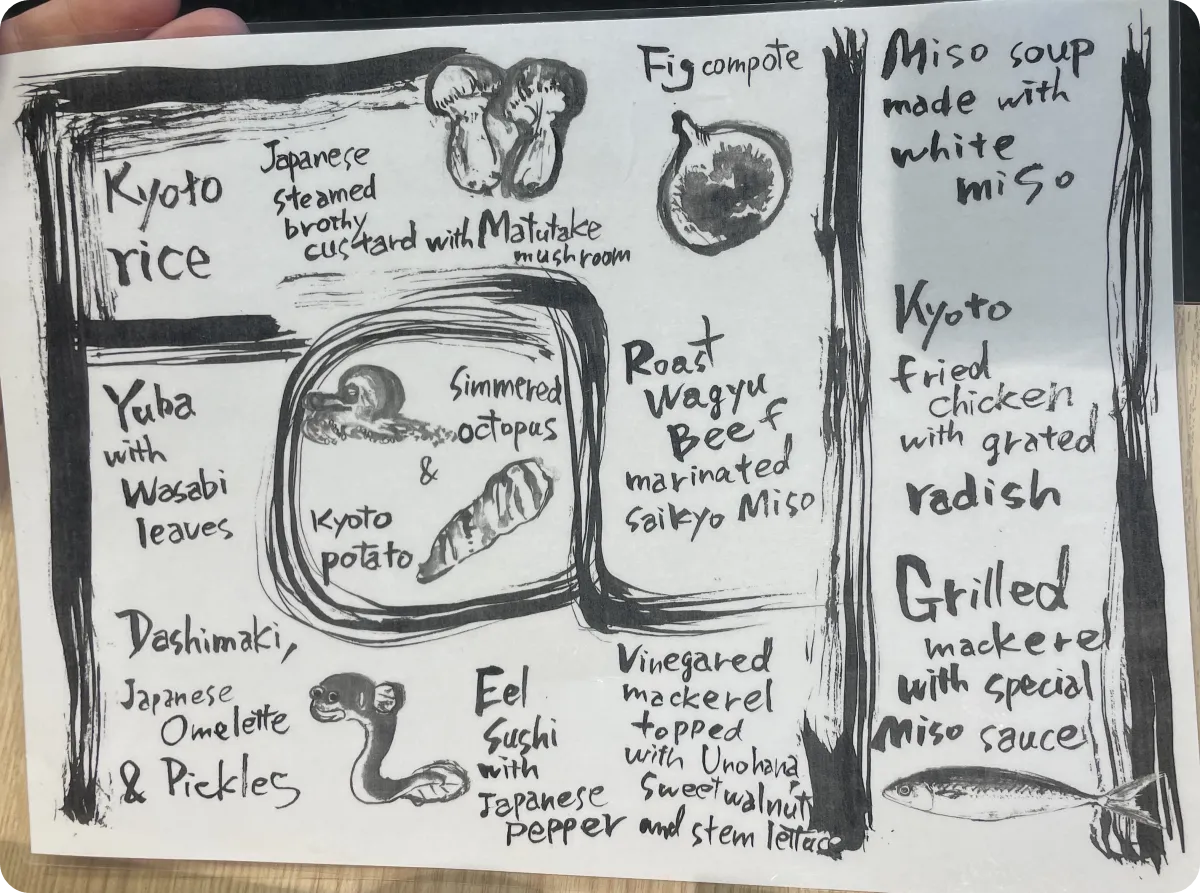 Kyoto
rice
Japanese
steamed
brothy
custard with Matutake
mushroom
Fig compote
Yuba
with
Wasabi
leaves
Simmered
octopus
&
Kyoto
potato
Roast
Wagyu
Beef
marinated
saikyo Miso
Dashimaki,
Japanese
Omelette
& Pickles
Eel
Sushi
with
Japanese
Pepper
Vinegared
mackerel
topped
with Unohana,
Sweet walnut
and stem lettuce
Miso soup
made with
white
miso
Kyoto
fried
chicken
with grated
radish
Grilled
mackerel
with special
Miso sauce